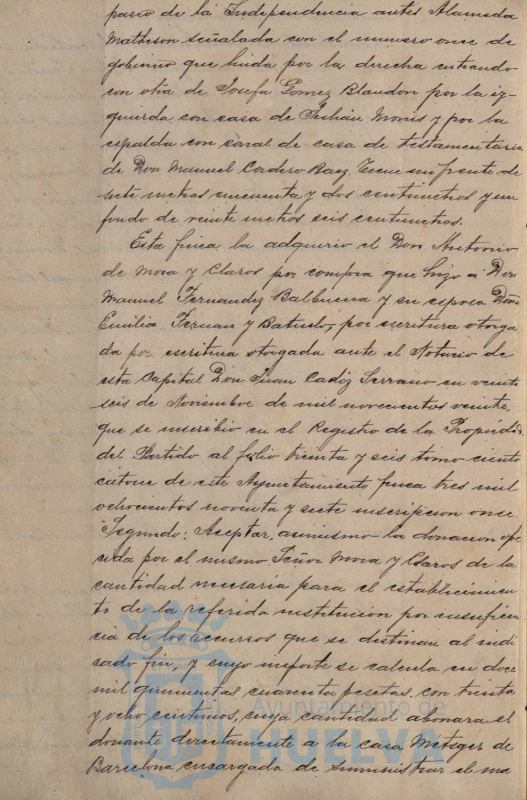 paseo de la Independencia antes Alameda
Matheson señalada con el numero once de
gobierno que linda por la derecha entrando
con otra de Josefa Gomez Blandon por la iz-
quierda con casa de Julian Moris y por la
espalda con corral de casa de testamentaria
de Don Manuel Cordero Baez. Tiene un frente de
siete metros cincuenta y dos centimetros y un
fondo de veinte metros seis centimetros.
Esta finca la adquerio el Don Antonio
de Mora y Claros por compra que hizo a Don
Manuel Fernandez Balbuena y su esposa Doña
Emilia y por escritura otorga
da por escritura otorgada ante el Notario de
esta Capital Don Juan Cadiz Serrano en veinti
seis de Noviembre de mil novecientos veinte,
que se inscribio en el Registro de la Propiedad
del Partido al folio treinta y seis tomo ciento
catorce de este Ayuntamiento finca tres mil
ochocientos noventa y siete inscripcion once.
Segundo: Aceptar, asimismo la donacion ofre
cida por el mismo Señor Mora y Claros de la
cantidad necesaria para el establecimien
to de la referida institucion por insuficien
cia de los recursos que se destinan al indi
cado fin, y cuyo importe se calcula en doce
mil quinientas cuarenta pesetas, con treinta
y ocho centimos, cuya cantidad abonara el
donante directamente a la casa Metzger de
Barcelona encargada de suministrar el ma
Ayuntamiento de
HUELVA